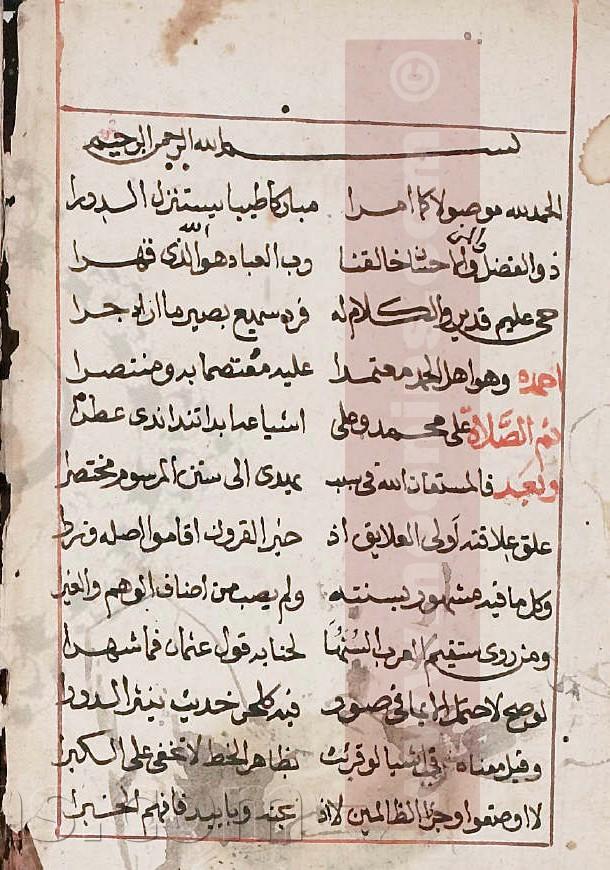 بسم الله الرحمن الرحيم
الحمد لله موصولا كما امرا مباركا طيبا يستنزل الدررا
ذو الفضل والمن والاحسان خالقنا رب العباد هو الله الذي قهرا
حي عليم قدير والكلام له فرد سميع بصير ما اراد جرا
احمده وهو اهل الحمد معتمدا عليه معتصما به ومنتصرا
ثم الصلاة على محمد وعلى اشياعه ابدا تندا ندى عطرا
وبعد فالمستعان الله في سبب يهدى الى سنن المرسوم مختصرا
علق علاقته اولى العلايق اذ خير القرون اقاموا اصله وزرا
وكل ما فيه مشهور بسنته ولم يصب من اضاف الوهم والغيرا
ومن روى ستقيم العرب السنها لحنا به قول عثمان فما شهرا
لو صح لاحتمل الايما في صور فيه كلحن حديث ينثر الدررا
وقيل معناه في اشيا لو قرئت بظاهر الخط لا تخفى على الكبرا
لا اوضعوا وجزاؤ الظالمين لا اذ بحنه وباييد فافهم الخبرا